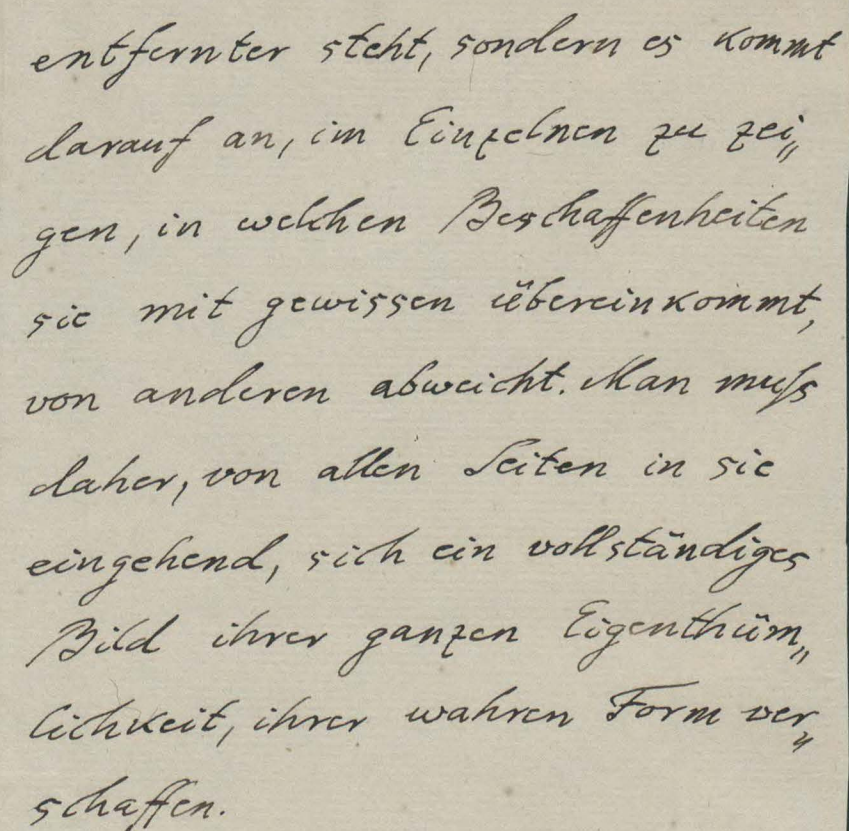 entfernter steht, sondern es kommt
darauf an, im Einzelnen zu zei„
gen, in welchen Beschaffenheiten
sie mit gewissen übereinkommt,
von anderen abweicht. Man muſs
daher, von allen Seiten in sie
eingehend, sich ein vollständiges
Bild ihrer ganzen Eigenthüm„
lichkeit, ihrer wahren Form ver„
schaffen.